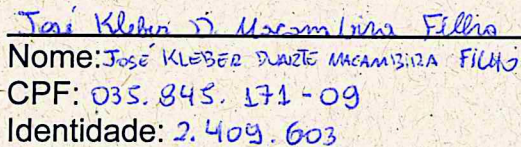 José Kleber D. Macambira Filho
Nome: JOSÉ KLEBER DUARTE MACAMBIRA FILHO
CPF: 035.845.171-09
Identidade: 2.409.603